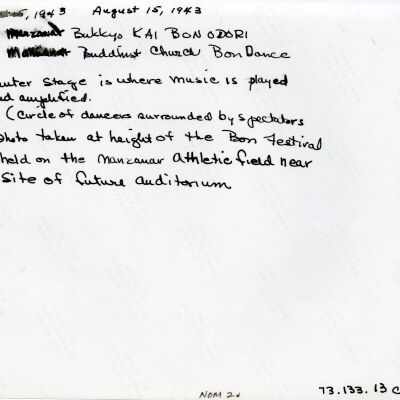 15, 1943 August 15, 1943
Manzanar Bukkyo KAI BON ODORI
Manzanar Buddhist Church Bon Dance
enter stage is where music is played
nd amplified.
(circle of dancers surrounded by spectators
photo taken at height of the Bon Festival
held on the Manzanar Athletic field near
site of future auditorium
NOM 2d
73.133.13 C